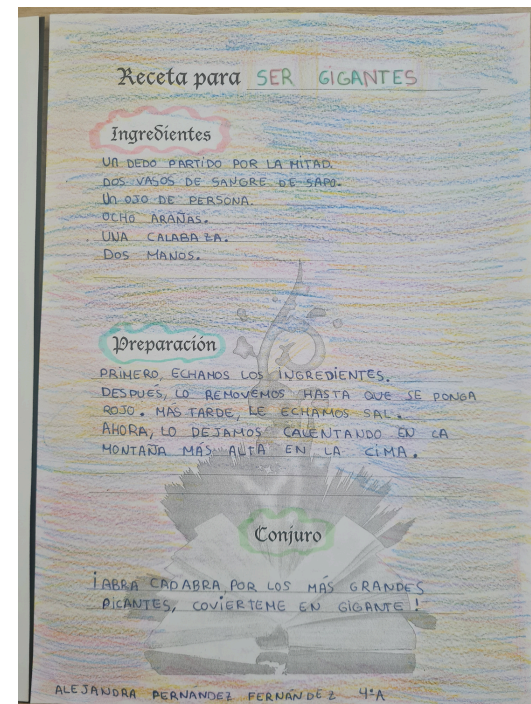 Receta para SER GIGANTES
Ingredientes
UN DEDO PARTIDO POR LA MITAD.
DOS VASOS DE SANGRE DE SAPO.
UN OJO DE PERSONA.
OCHO ARAÑAS.
UNA CALABAZA.
DOS MANOS.
Preparación
PRIMERO, ECHAMOS LOS INGREDIENTES.
DESPUES, LO REMOVEMOS HASTA QUE SE PONGA
ROJO. MÁS TARDE, LE ECHAMOS SAL.
AHORA, LO DEJAMOS CALENTANDO EN LA
MONTAÑA MÁS ALTA EN LA CIMA.
Conjuro
¡ABRA CADABRA, POR LOS MÁS GRANDES
PICANTES, COVIERTEME EN GIGANTE!
ALEJANDRA PERNANDEZ FERNÁNDEZ 4ºA